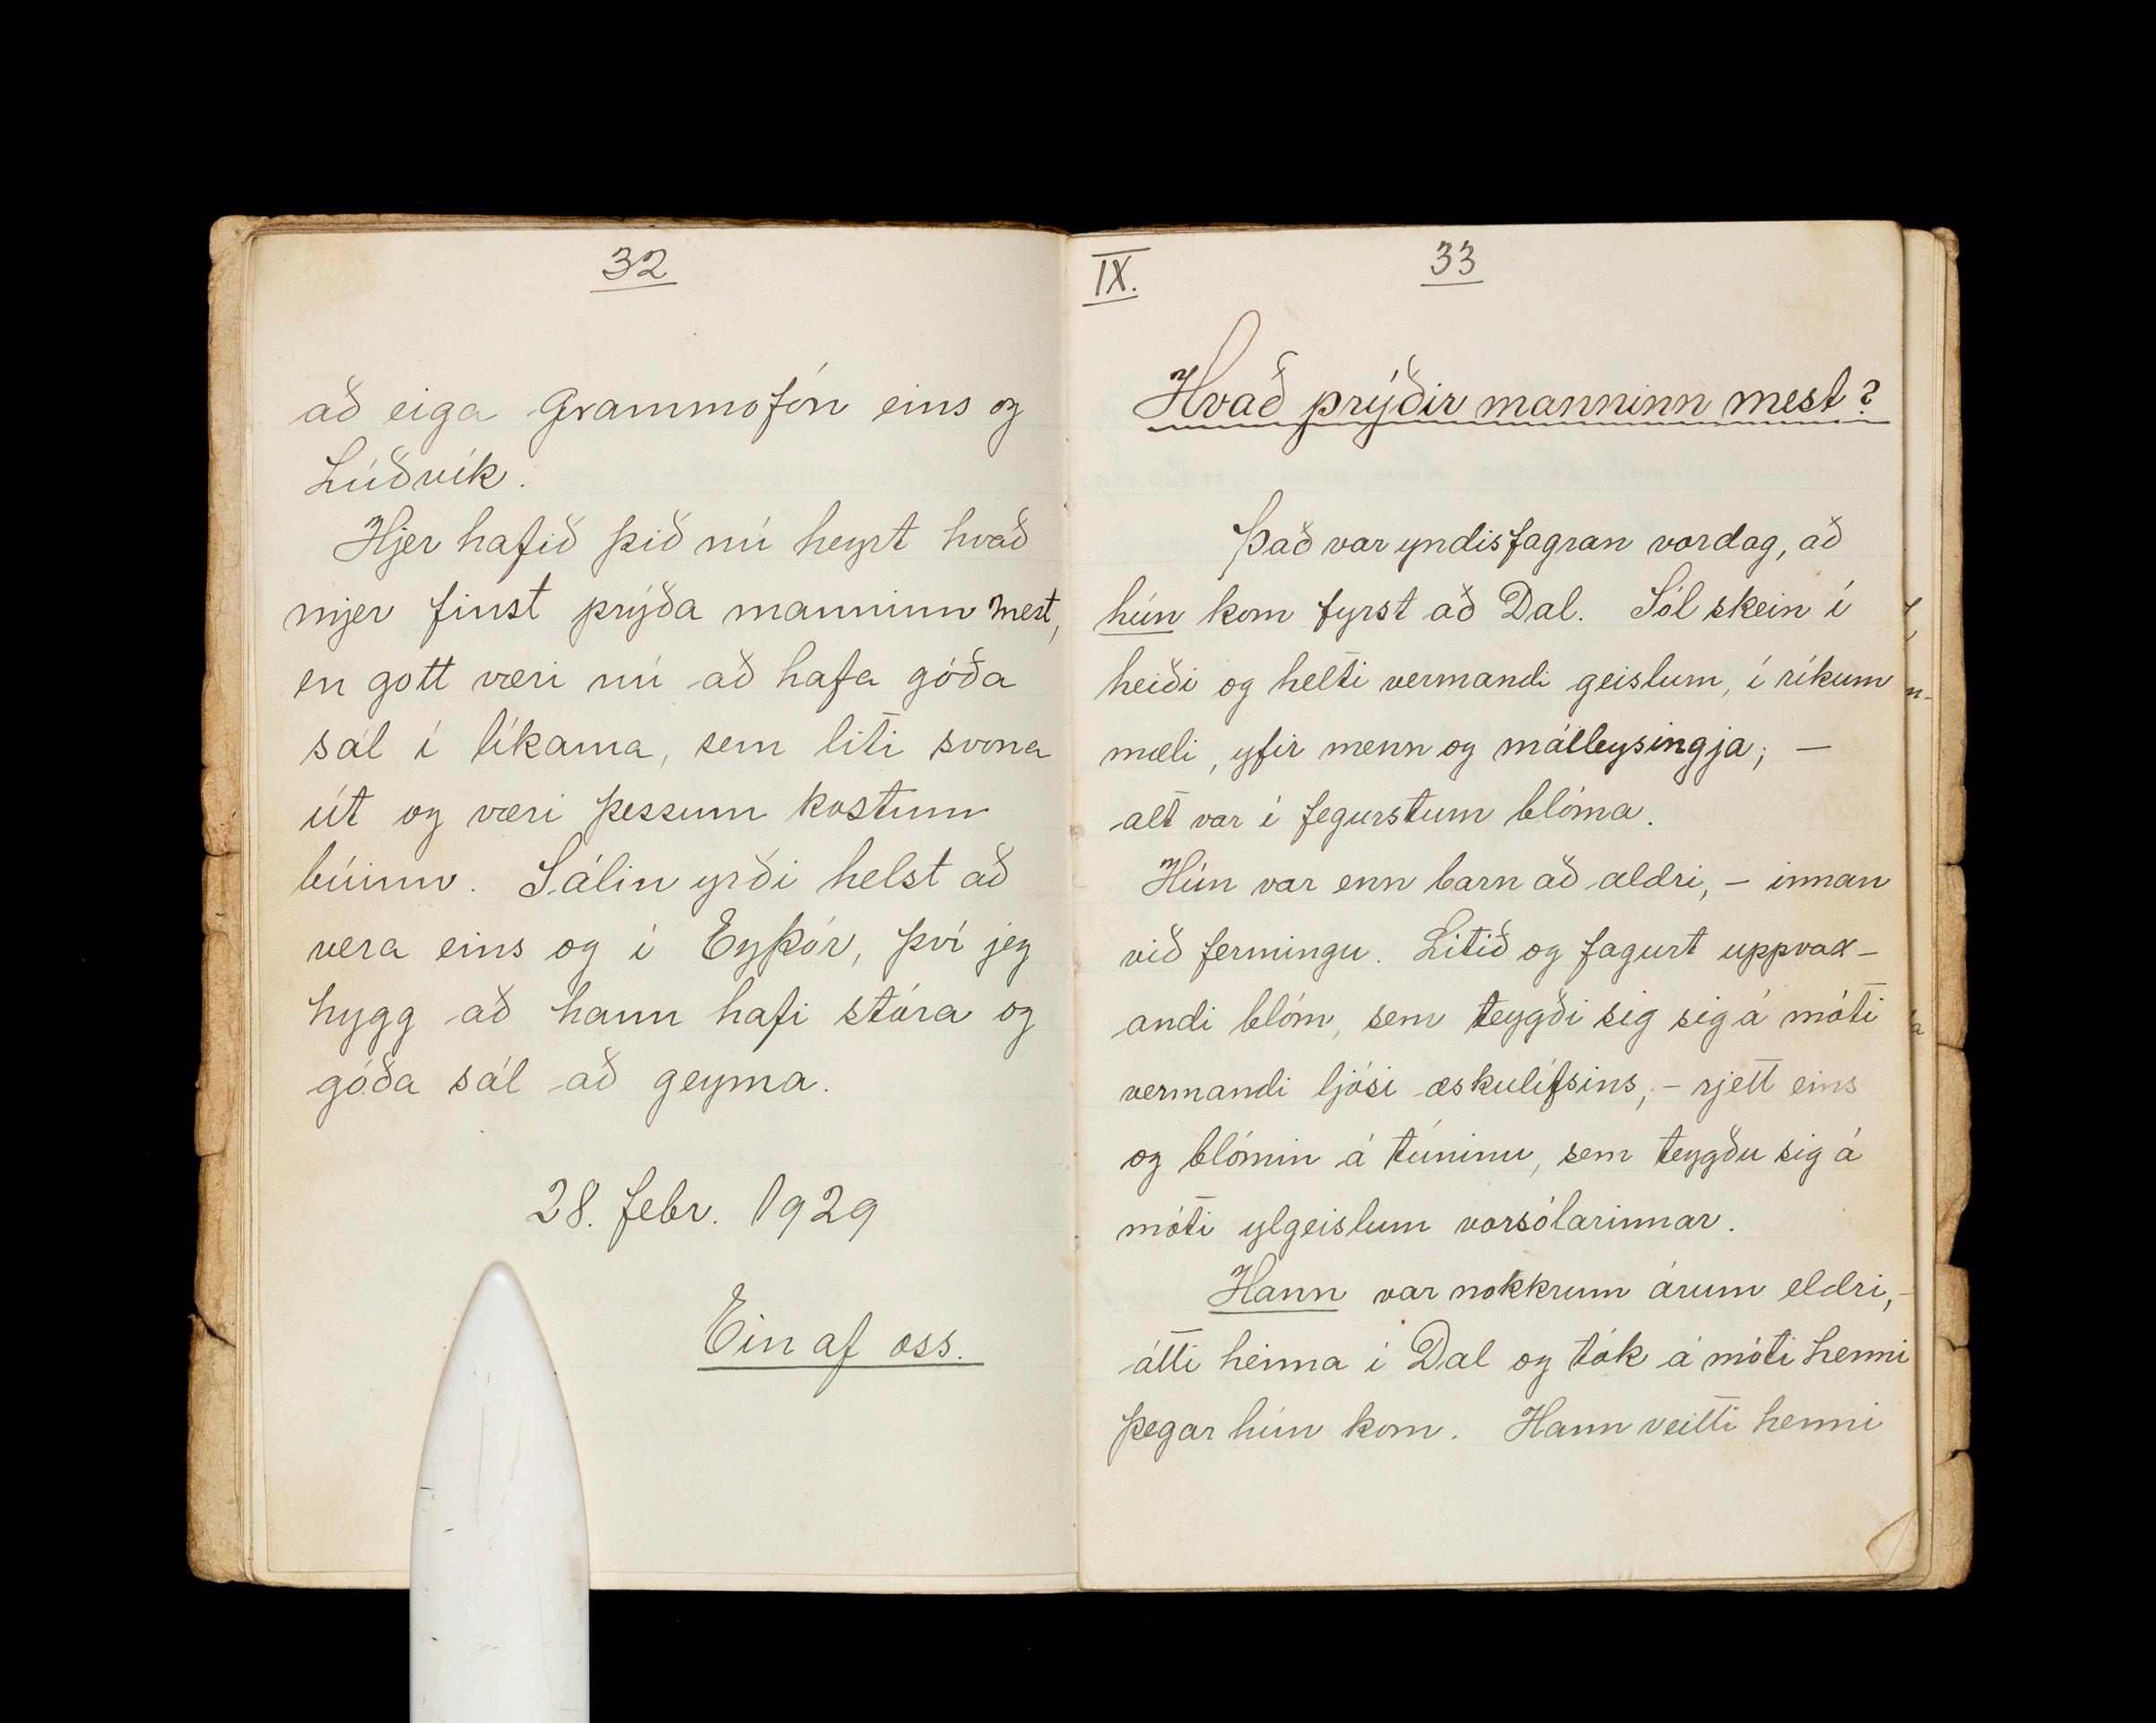 32
að eiga Grammofón eins og
Lúðvík.
Hjer hafið þið nú heyrt hvað
mjer finst prýða manninn mest,
en gott væri nú að hafa góða
sál í líkama, sem liti svona
út og væri þessum kostum
búinn. Sálin yrði helst að
vera eins og í Eyþór, því jeg
hygg að hann hafi stóra og
góða sál að geyma.
28. febr. 1929
Ein af oss.
IX.
33
Hvað prýðir manninn mest?
Það var yndisfagran vordag, að
hún kom fyrst að Dal. Sól skein í
heiði og helti vermandi geislum, í ríkum
mæli, yfir menn og málleysingja; —
alt var í fegurstum blóma.
Hún var enn barn að aldri, – innan
við fermingu. Lítið og fagurt uppvax-
andi blóm, sem teygði sig sig á móti
vermandi ljósi æskulífsins, – rjett eins
og blómin á túninu, sem teygðu sig á
móti ylgeislum vorsólarinnar.
Hann var nokkrum árum eldri, –
átti heima í Dal og tók á móti henni
þegar hún kom. Hann veitti henni